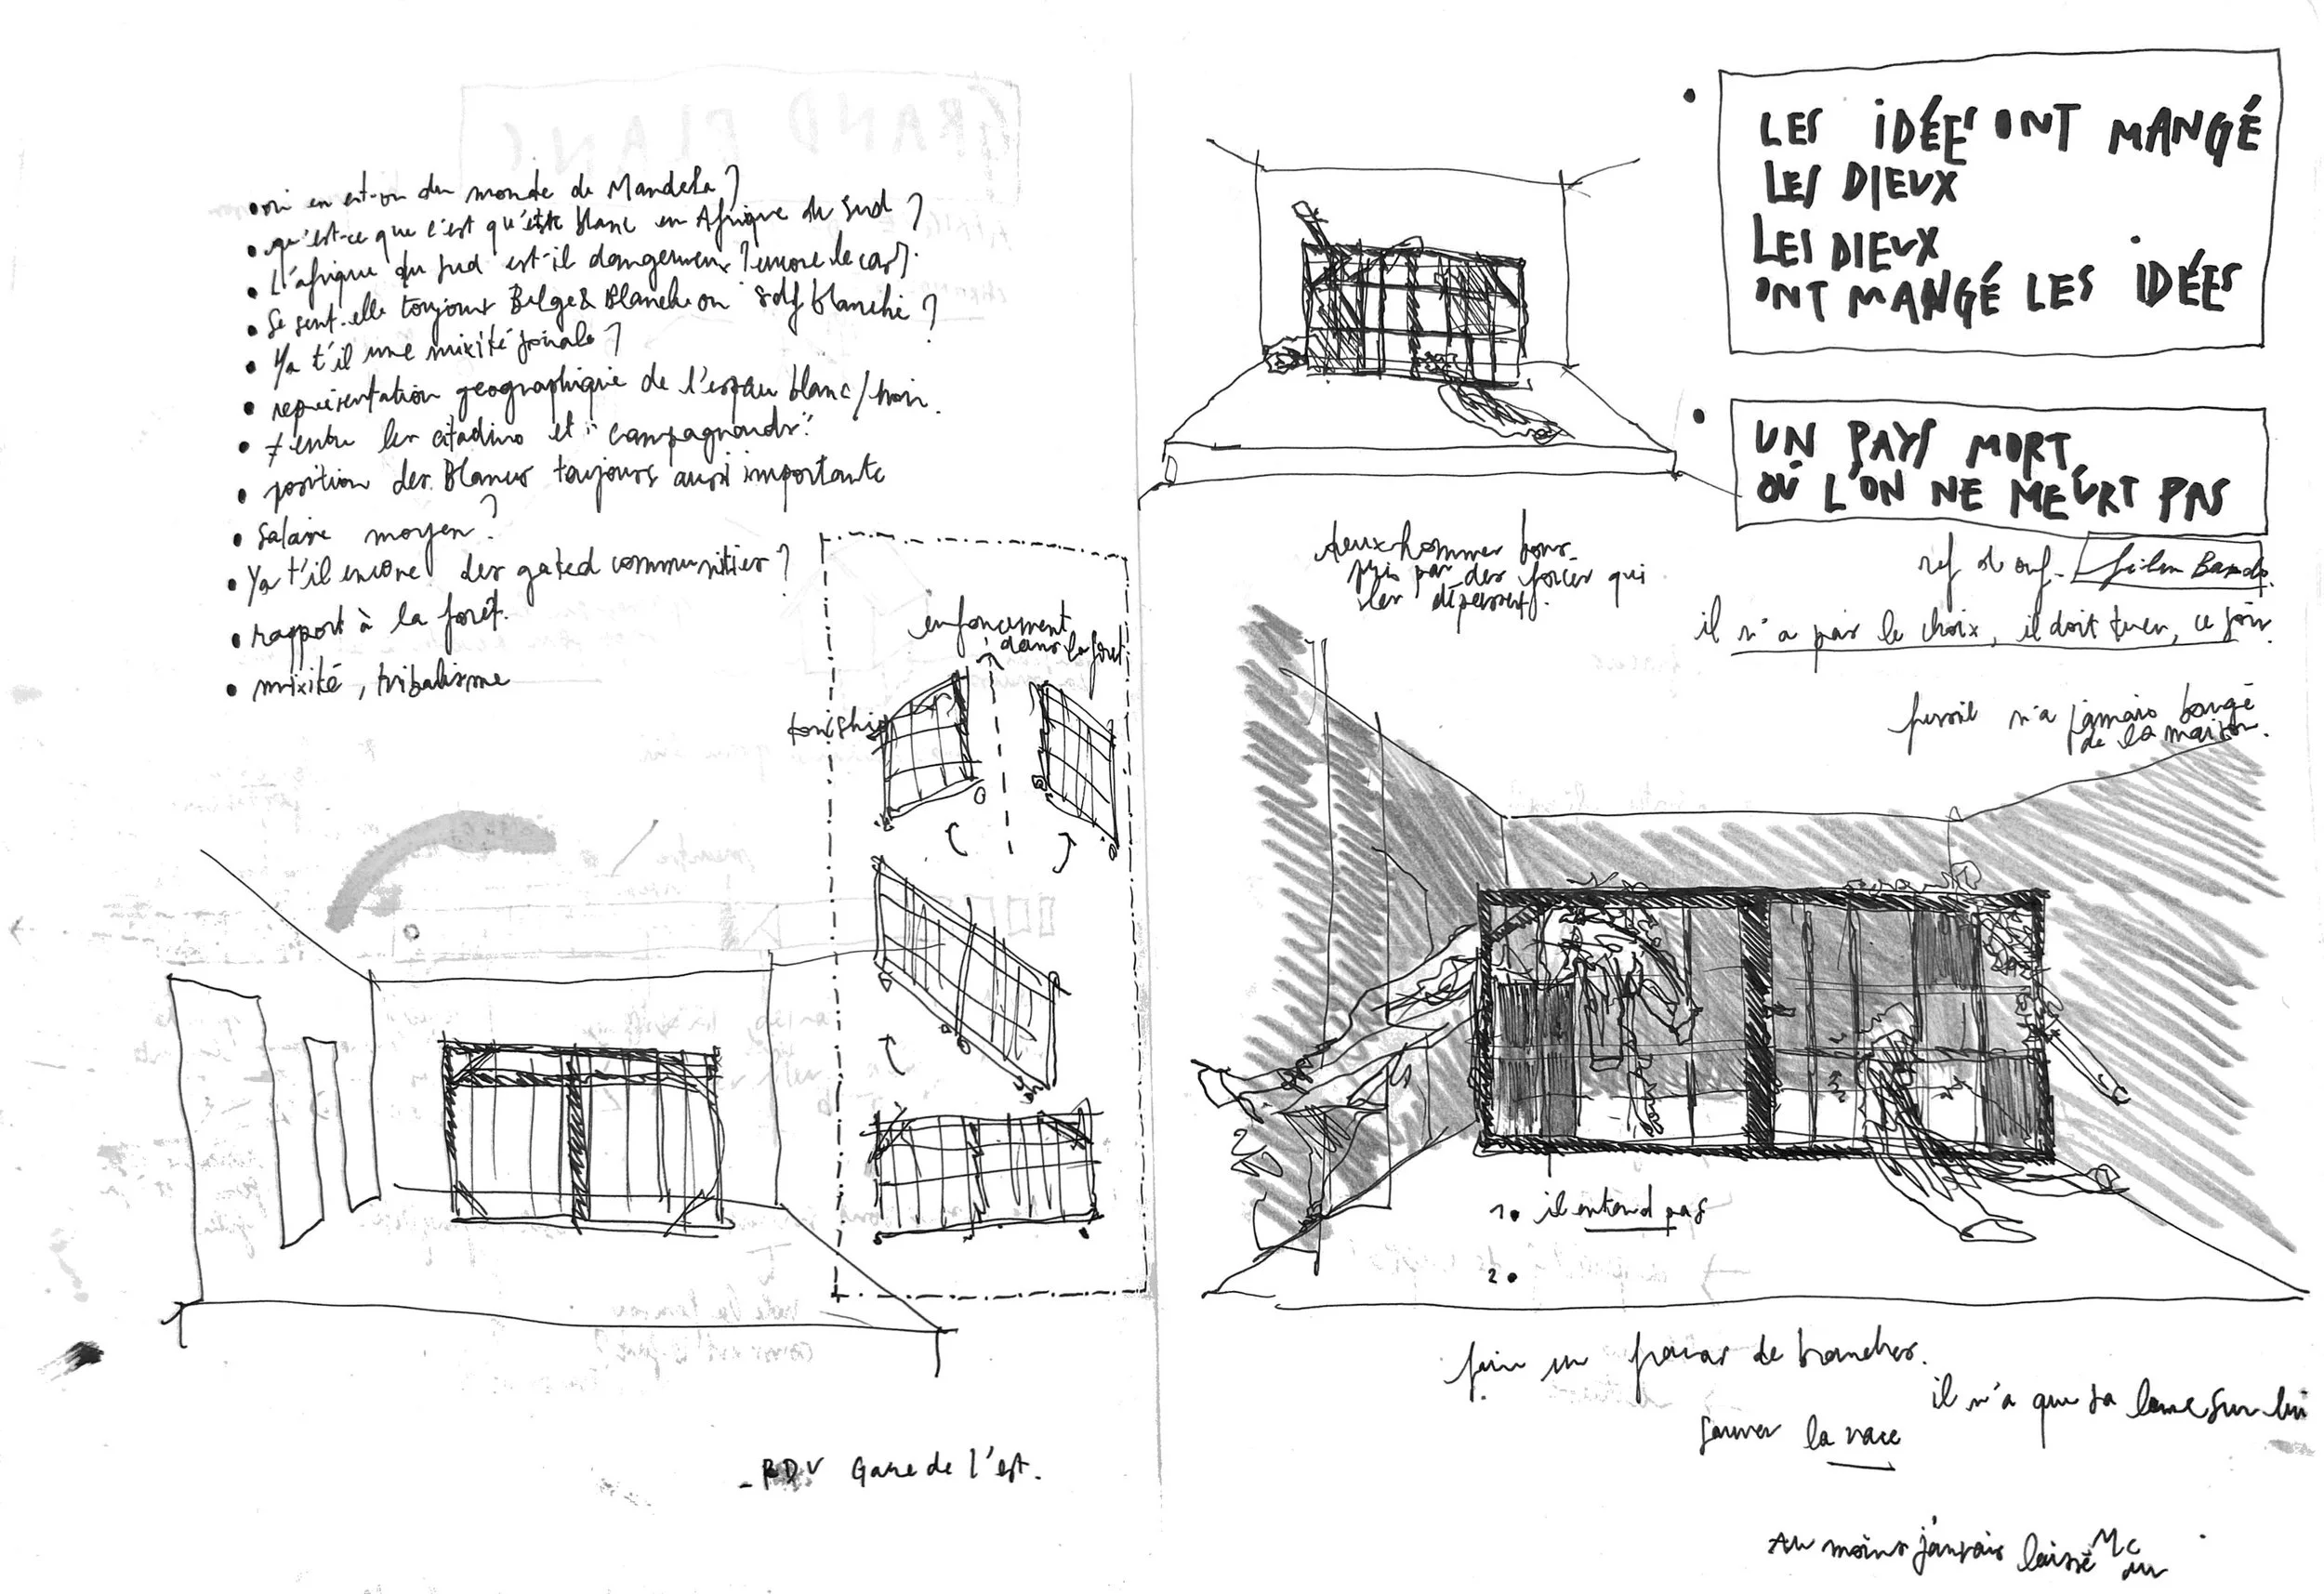 • où en est-on du monde de Mandela ?
• qu'est-ce que c'est qu'être blanc en Afrique du Sud ?
• L'afrique du sud est-il dangereux ? encore le cas ?
• Se sent-elle toujours Belge & Blanche ou sdf blanche ?
• Ya t'il une mixité sociale ?
• représentation géographique de l'espace blanc/noir.
• ≠ entre les citadins et "campagnards".
• position des Blancs toujours aussi importante
• salaire moyen ?
• Ya t'il encore des gated communities ?
• rapport à la forêt.
• mixité, tribalisme
enfoncement
dans la forêt
township
- RDV Gare de l'est.
• LES IDÉES ONT MANGÉ
LES DIEUX
LES DIEUX
ONT MANGÉ LES IDÉES
• UN PAYS MORT
OÙ L'ON NE MEURT PAS
deux hommes
pris par des forces qui
les dépassent.
ref film
il n'a pas le choix, il doit tuer, ce soir.
n'a jamais bougé
de la maison.
1. il entend pas
2.
faire un de branches.
il n'a que sa lame sur lui
sauver la race
Au moins j'aurais laissé